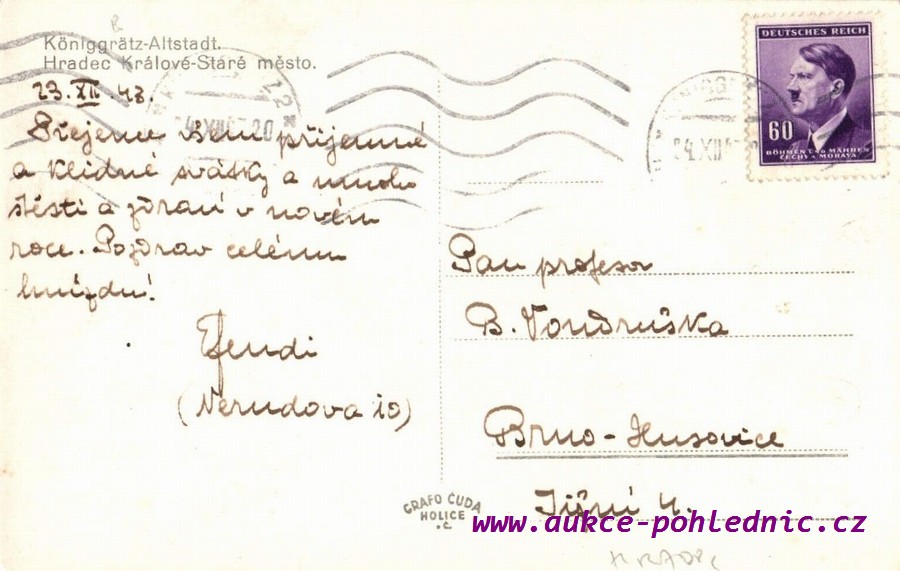 Königgrätz-Altstadt.
Hradec Králové-Staré město.
23. XII 43.
Přejeme Všem příjemné
a klidné svátky a mnoho
štěstí a zdraví v novém
roce. Pozdrav celému
hnízdu!
Efendi
(Nerudova 10)
DEUTSCHES REICH
60
BÖHMEN U. MÄHREN
ČECHY A MORAVA
Pan profesor
B. Vondruška
Brno-Husovice
Jižní 4.
GRAFO ČUDA
HOLICE
www.aukce-pohlednic.cz
HRADEC